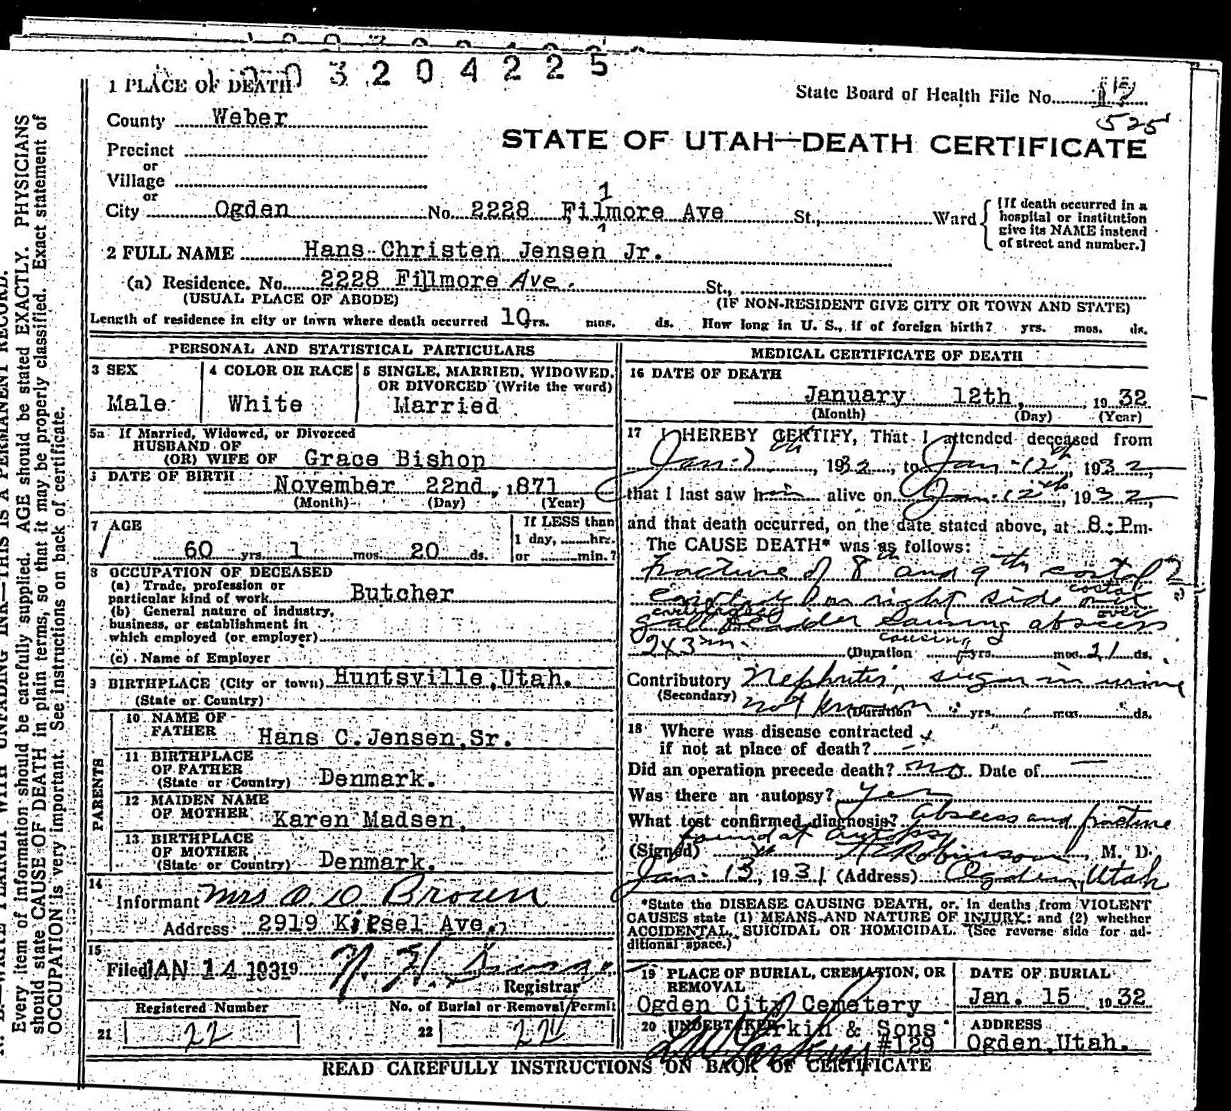 0 3 2 0 4 2 2 5
1 PLACE OF DEATH
State Board of Health File No.
525
County Weber
STATE OF UTAH—DEATH CERTIFICATE
Precinct
or
Village
or
City Ogden No. 2228 Filmore Ave St., Ward
l
[If death occurred in a
hospital or institution
give its NAME instead
of street and number.]
2 FULL NAME Hans Christen Jensen Jr.
(a) Residence. No. 2228 Fillmore Ave. St.,
(USUAL PLACE OF ABODE) (IF NON-RESIDENT GIVE CITY OR TOWN AND STATE)
Length of residence in city or town where death occurred 10 yrs. mos. ds. How long in U. S., if of foreign birth? yrs. mos. ds.
PERSONAL AND STATISTICAL PARTICULARS
3 SEX
Male
4 COLOR OR RACE
White
5 SINGLE, MARRIED, WIDOWED,
OR DIVORCED (Write the word)
Married
5a If Married, Widowed, or Divorced
HUSBAND OF
(OR) WIFE OF Grace Bishop
DATE OF BIRTH
November 22nd, 1871
(Month) (Day) (Year)
7 AGE
60 yrs. 1 mos. 20 ds.
If LESS than
1 day, hrs.
or min.?
8 OCCUPATION OF DECEASED
(a) Trade, profession or
particular kind of work Butcher
(b) General nature of industry,
business, or establishment in
which employed (or employer)
(c) Name of Employer
9 BIRTHPLACE (City or town) Huntsville, Utah.
(State or Country)
PARENTS
10 NAME OF
FATHER Hans C. Jensen, Sr.
11 BIRTHPLACE
OF FATHER
(State or Country) Denmark.
12 MAIDEN NAME
OF MOTHER Karen Madsen.
13 BIRTHPLACE
OF MOTHER
(State or Country) Denmark.
14
Informant Mrs O. D Brown
Address 2919 Kiesel Ave.
15
Filed JAN 14 1931 19
Registrar
Registered Number
21 22
No. of Burial or Removal Permit
22
MEDICAL CERTIFICATE OF DEATH
16 DATE OF DEATH
January 12th, 1932
(Month) (Day) (Year)
17 I HEREBY CERTIFY, That I attended deceased from
Jan. 7th, 1932, to Jan. 12th, 1932,
that I last saw him alive on Jan. 12th, 1932
and that death occurred, on the date stated above, at 8: P.m.
The CAUSE DEATH* was as follows:
Fracture of 8th and 9th costal
cartilage on right side over
gall bladder causing abscess
2x3 in. (Duration yrs. mos. 21 ds.
Contributory Nephritis, sugar in urine
(Secondary) not known (Duration yrs. mos. ds.
18 Where was disease contracted
if not at place of death?
Did an operation precede death? no Date of
Was there an autopsy? Yes
What test confirmed diagnosis? Abscess and fracture
found at autopsy
(Signed) Robinson, M. D.
Jan. 13, 1931 (Address) Ogden, Utah
*State the DISEASE CAUSING DEATH, or, in deaths from VIOLENT
CAUSES state (1) MEANS AND NATURE OF INJURY: and (2) whether
ACCIDENTAL, SUICIDAL OR HOMICIDAL. (See reverse side for ad-
ditional space.)
19 PLACE OF BURIAL, CREMATION, OR
REMOVAL
Ogden City Cemetery
DATE OF BURIAL
Jan. 15 1932
20 UNDERTAKER Larkin & Sons
#129
ADDRESS
Ogden, Utah.
READ CAREFULLY INSTRUCTIONS ON BACK OF CERTIFICATE
WRITE PLAINLY WITH UNFADING INK—THIS IS A PERMANENT RECORD.
Every item of information should be carefully supplied. AGE should be stated EXACTLY. PHYSICIANS
should state CAUSE OF DEATH in plain terms, so that it may be properly classified. Exact statement of
OCCUPATION is very important. See instructions on back of certificate.